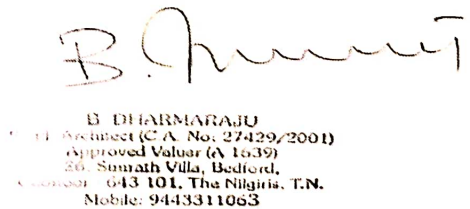 B.
B. DHARMARAJU
Architect (C.A. No: 27429/2001)
Approved Valuer (A 1639)
26, Sumath Villa, Bedford,
643 101. The Nilgiris. T.N.
Mobile: 9443311063